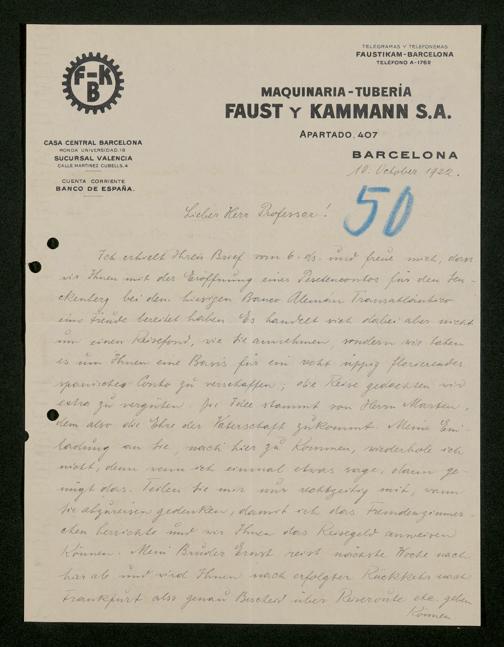 TELEGRAMAS Y TELEFONEMAS
FAUSTIKAM-BARCELONA
TELÉFONO A-1762
F-K
B
MAQUINARIA-TUBERÍA
FAUST Y KAMMANN S.A.
APARTADO, 407
CASA CENTRAL BARCELONA
RONDA UNIVERSIDAD, 18
SUCURSAL VALENCIA
CALLE MARTINEZ CUBELLS, 4
CUENTA CORRIENTE
BANCO DE ESPAÑA.
BARCELONA
10. October 1922.
50
Lieber Herr Professor!
Ich erhielt Ihren Brief vom 6. ds. und freue mich, dass
wir Ihnen mit der Eröffnung eines Pesetencontos für den Sen-
ckenberg bei dem hiesigen Banco Aleman Transatlántico
eine Freude bereitet haben. Es handelt sich dabei aber nicht
um einen Reisefond, wie Sie annehmen, sondern wir taten
es um Ihnen eine Basis für ein recht üppig florierendes
spanisches Conto zu verschaffen; die Reise gedachten wir
extra zu vergüten. Die Idee stammt von Herrn
dem also die Ehre der Vaterschaft zukommt. Meine Ein-
ladung an Sie, nach hier zu kommen, wiederhole ich
nicht, denn wenn ich einmal etwas sage, dann ge-
nügt das. Teilen Sie mir nur rechtzeitig mit, wann
Sie abzureisen gedenken, damit ich das Fremdenzimmer-
chen herrichte und wir Ihnen das Reisegeld anweisen
können. Mein Bruder Ernst reist nächste Woche nach
hier ab und wird Ihnen nach erfolgter Rückkehr nach
Frankfurt also genau Bescheid über Reiseroute etc. geben
können